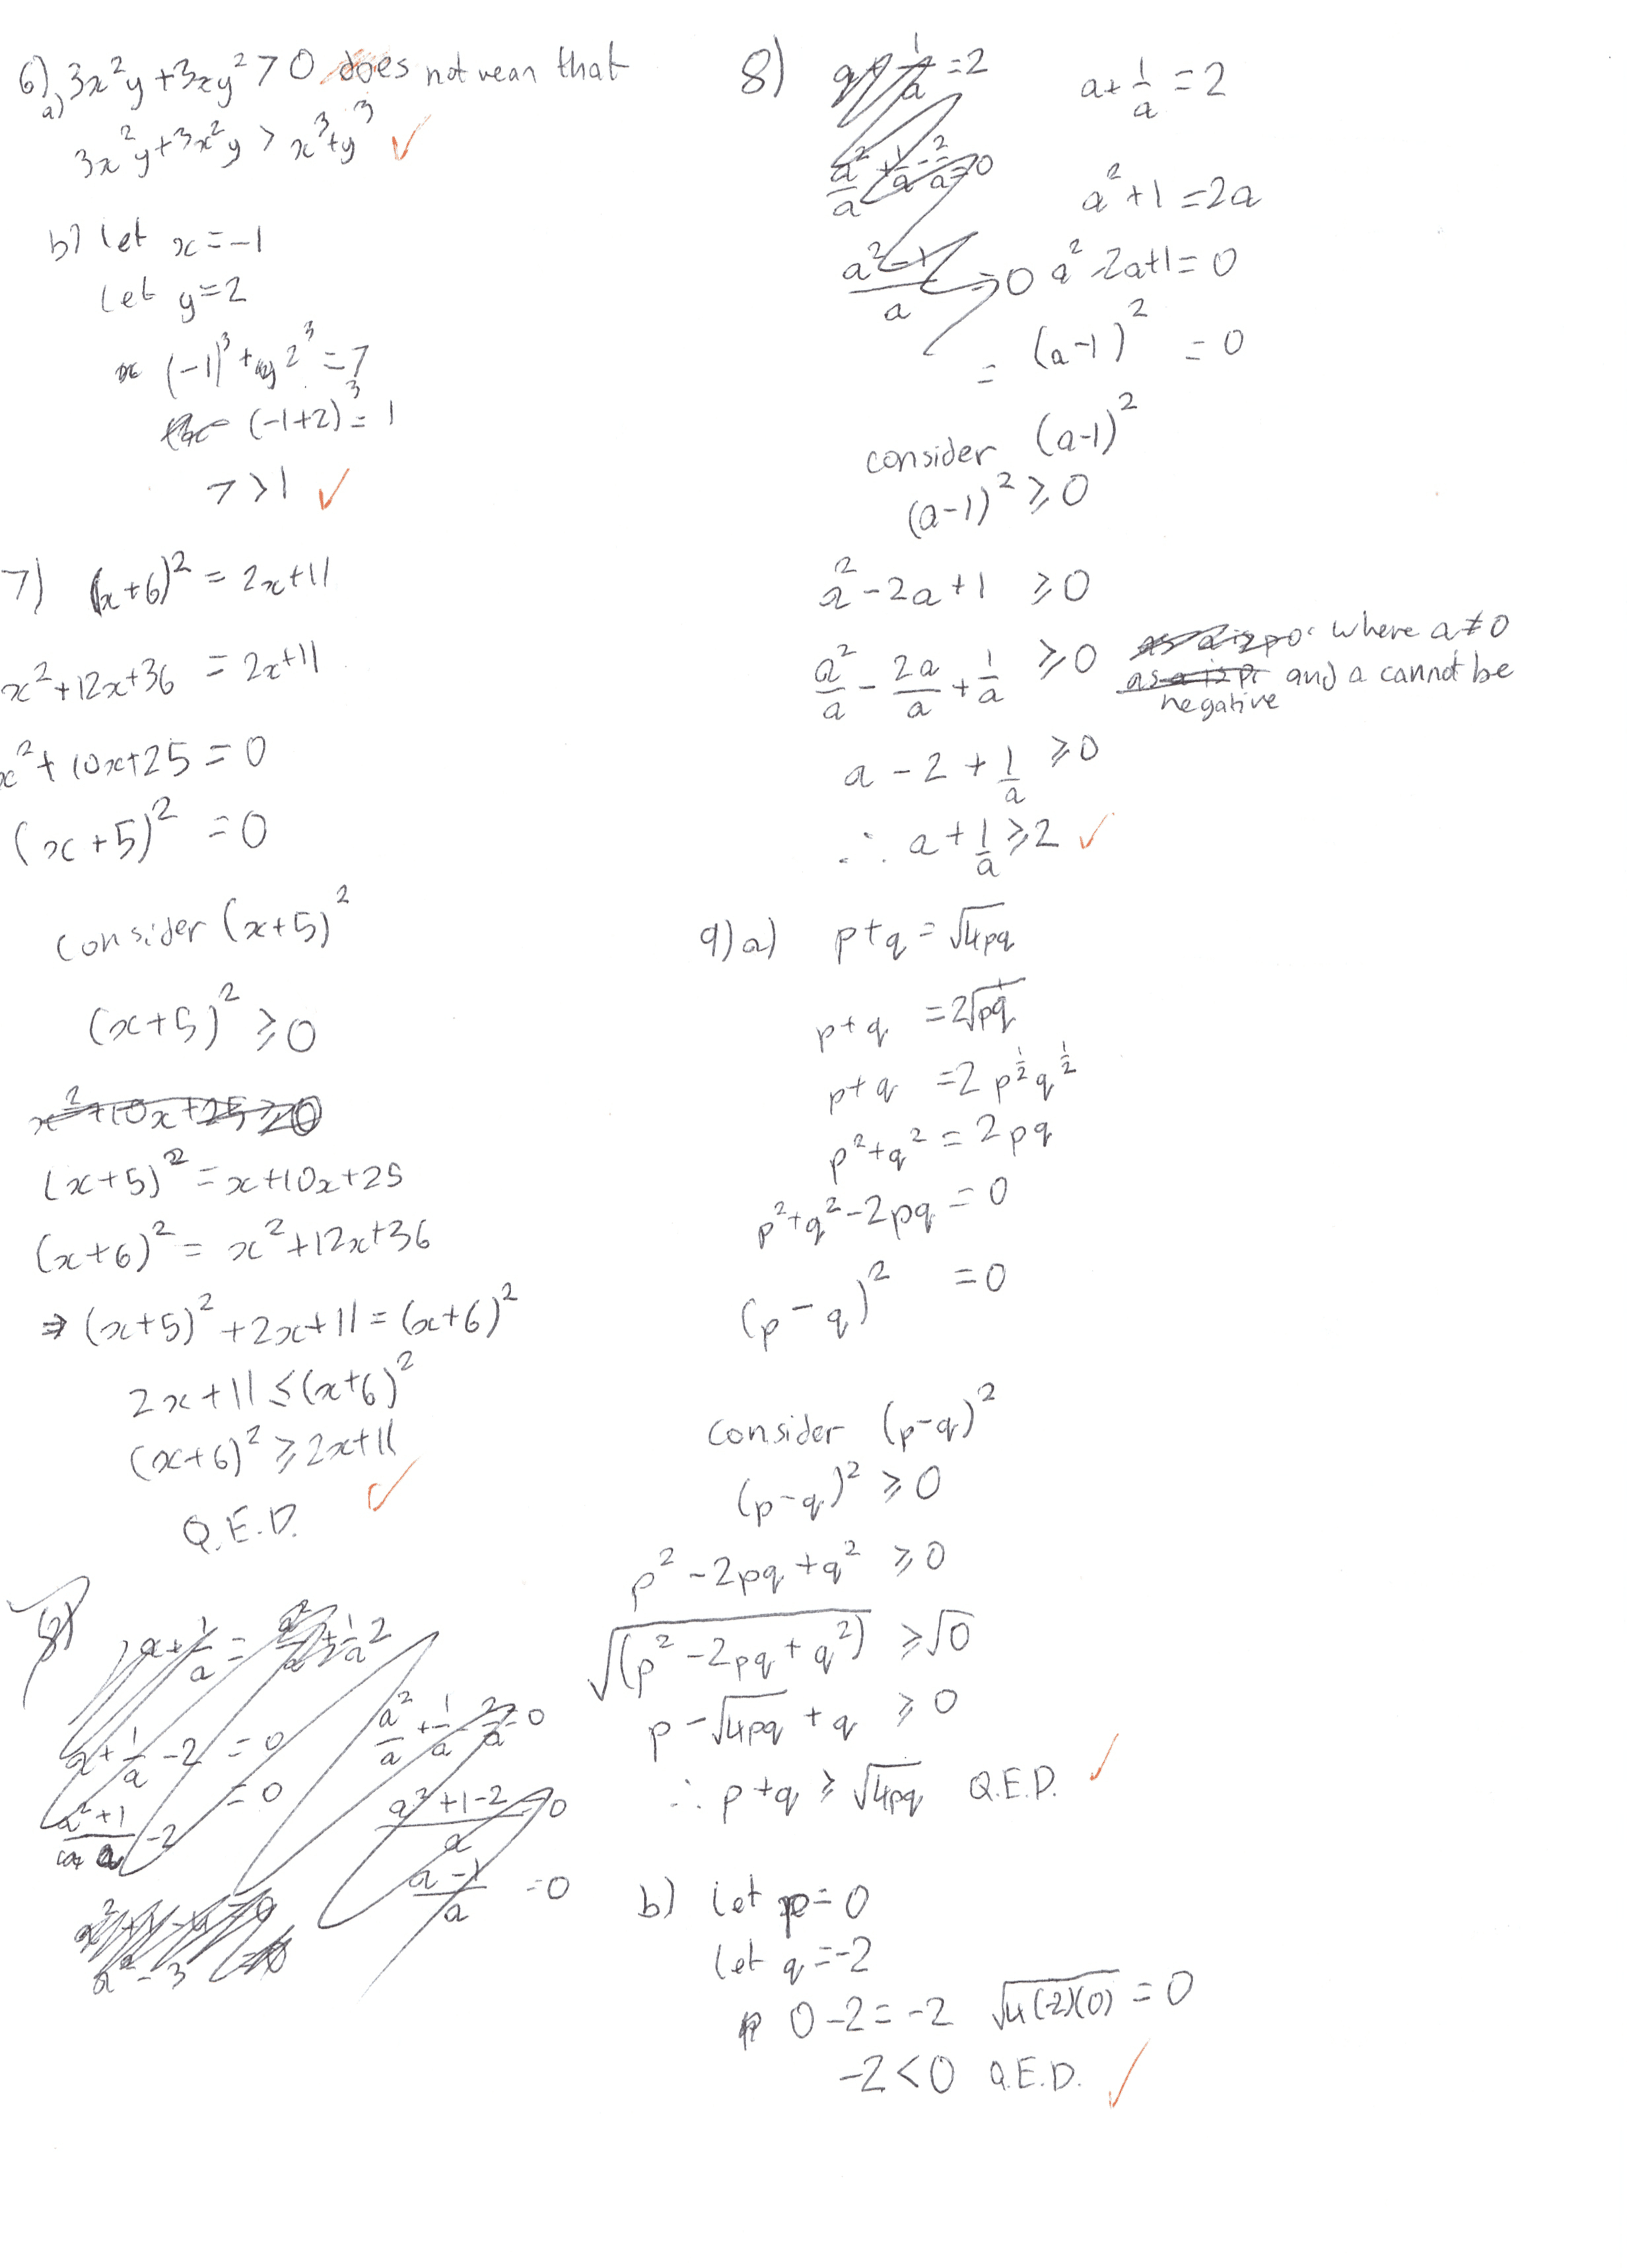 6) a) 3x²y + 3xy² > 0 does not mean that
3x²y + 3x²y > x³+y³ ✓
b) let x = -1
let y = 2
(-1)³ + 2³ = 7
(-1+2)³ = 1
7 > 1 ✓
7) (x+6)² = 2x+11
x²+12x+36 = 2x+11
x²+10x+25 = 0
(x+5)² = 0
consider (x+5)²
(x+5)² ⩾ 0
x²+10x+25 ⩾ 0
(x+5)² = x+10x+25
(x+6)² = x²+12x+36
⇒ (x+5)² + 2x+11 = (x+6)²
2x+11 ≤ (x+6)²
(x+6)² ⩾ 2x+11
Q.E.D. ✓
8)
a + 1/a - 2 = 0
(a²+1)/a - 2 = 0
a²/a + 1/a - 2/a = 0
(a²+1-2)/a = 0
(a-1)/a = 0
a² - 3
8)
a²/a + 1/a - 2/a = 0
(a²-1)/a = 0
a + 1/a = 2
a² + 1 = 2a
a² - 2a + 1 = 0
= (a-1)² = 0
consider (a-1)²
(a-1)² ⩾ 0
a² - 2a + 1 ⩾ 0
a²/a - 2a/a + 1/a ⩾ 0 where a ≠ 0
and a cannot be
negative
a - 2 + 1/a ⩾ 0
∴ a + 1/a ⩾ 2 ✓
9) a) p+q = √4pq
p+q = 2√pq
p+q = 2p^½q^½
p²+q² = 2pq
p²+q²-2pq = 0
(p-q)² = 0
consider (p-q)²
(p-q)² ⩾ 0
p² - 2pq + q² ⩾ 0
√(p² - 2pq + q²) ⩾ √0
p - √4pq + q ⩾ 0
∴ p+q ⩾ √4pq Q.E.D. ✓
b) let p = 0
let q = -2
0-2 = -2 √4(-2)(0) = 0
-2 < 0 Q.E.D. ✓